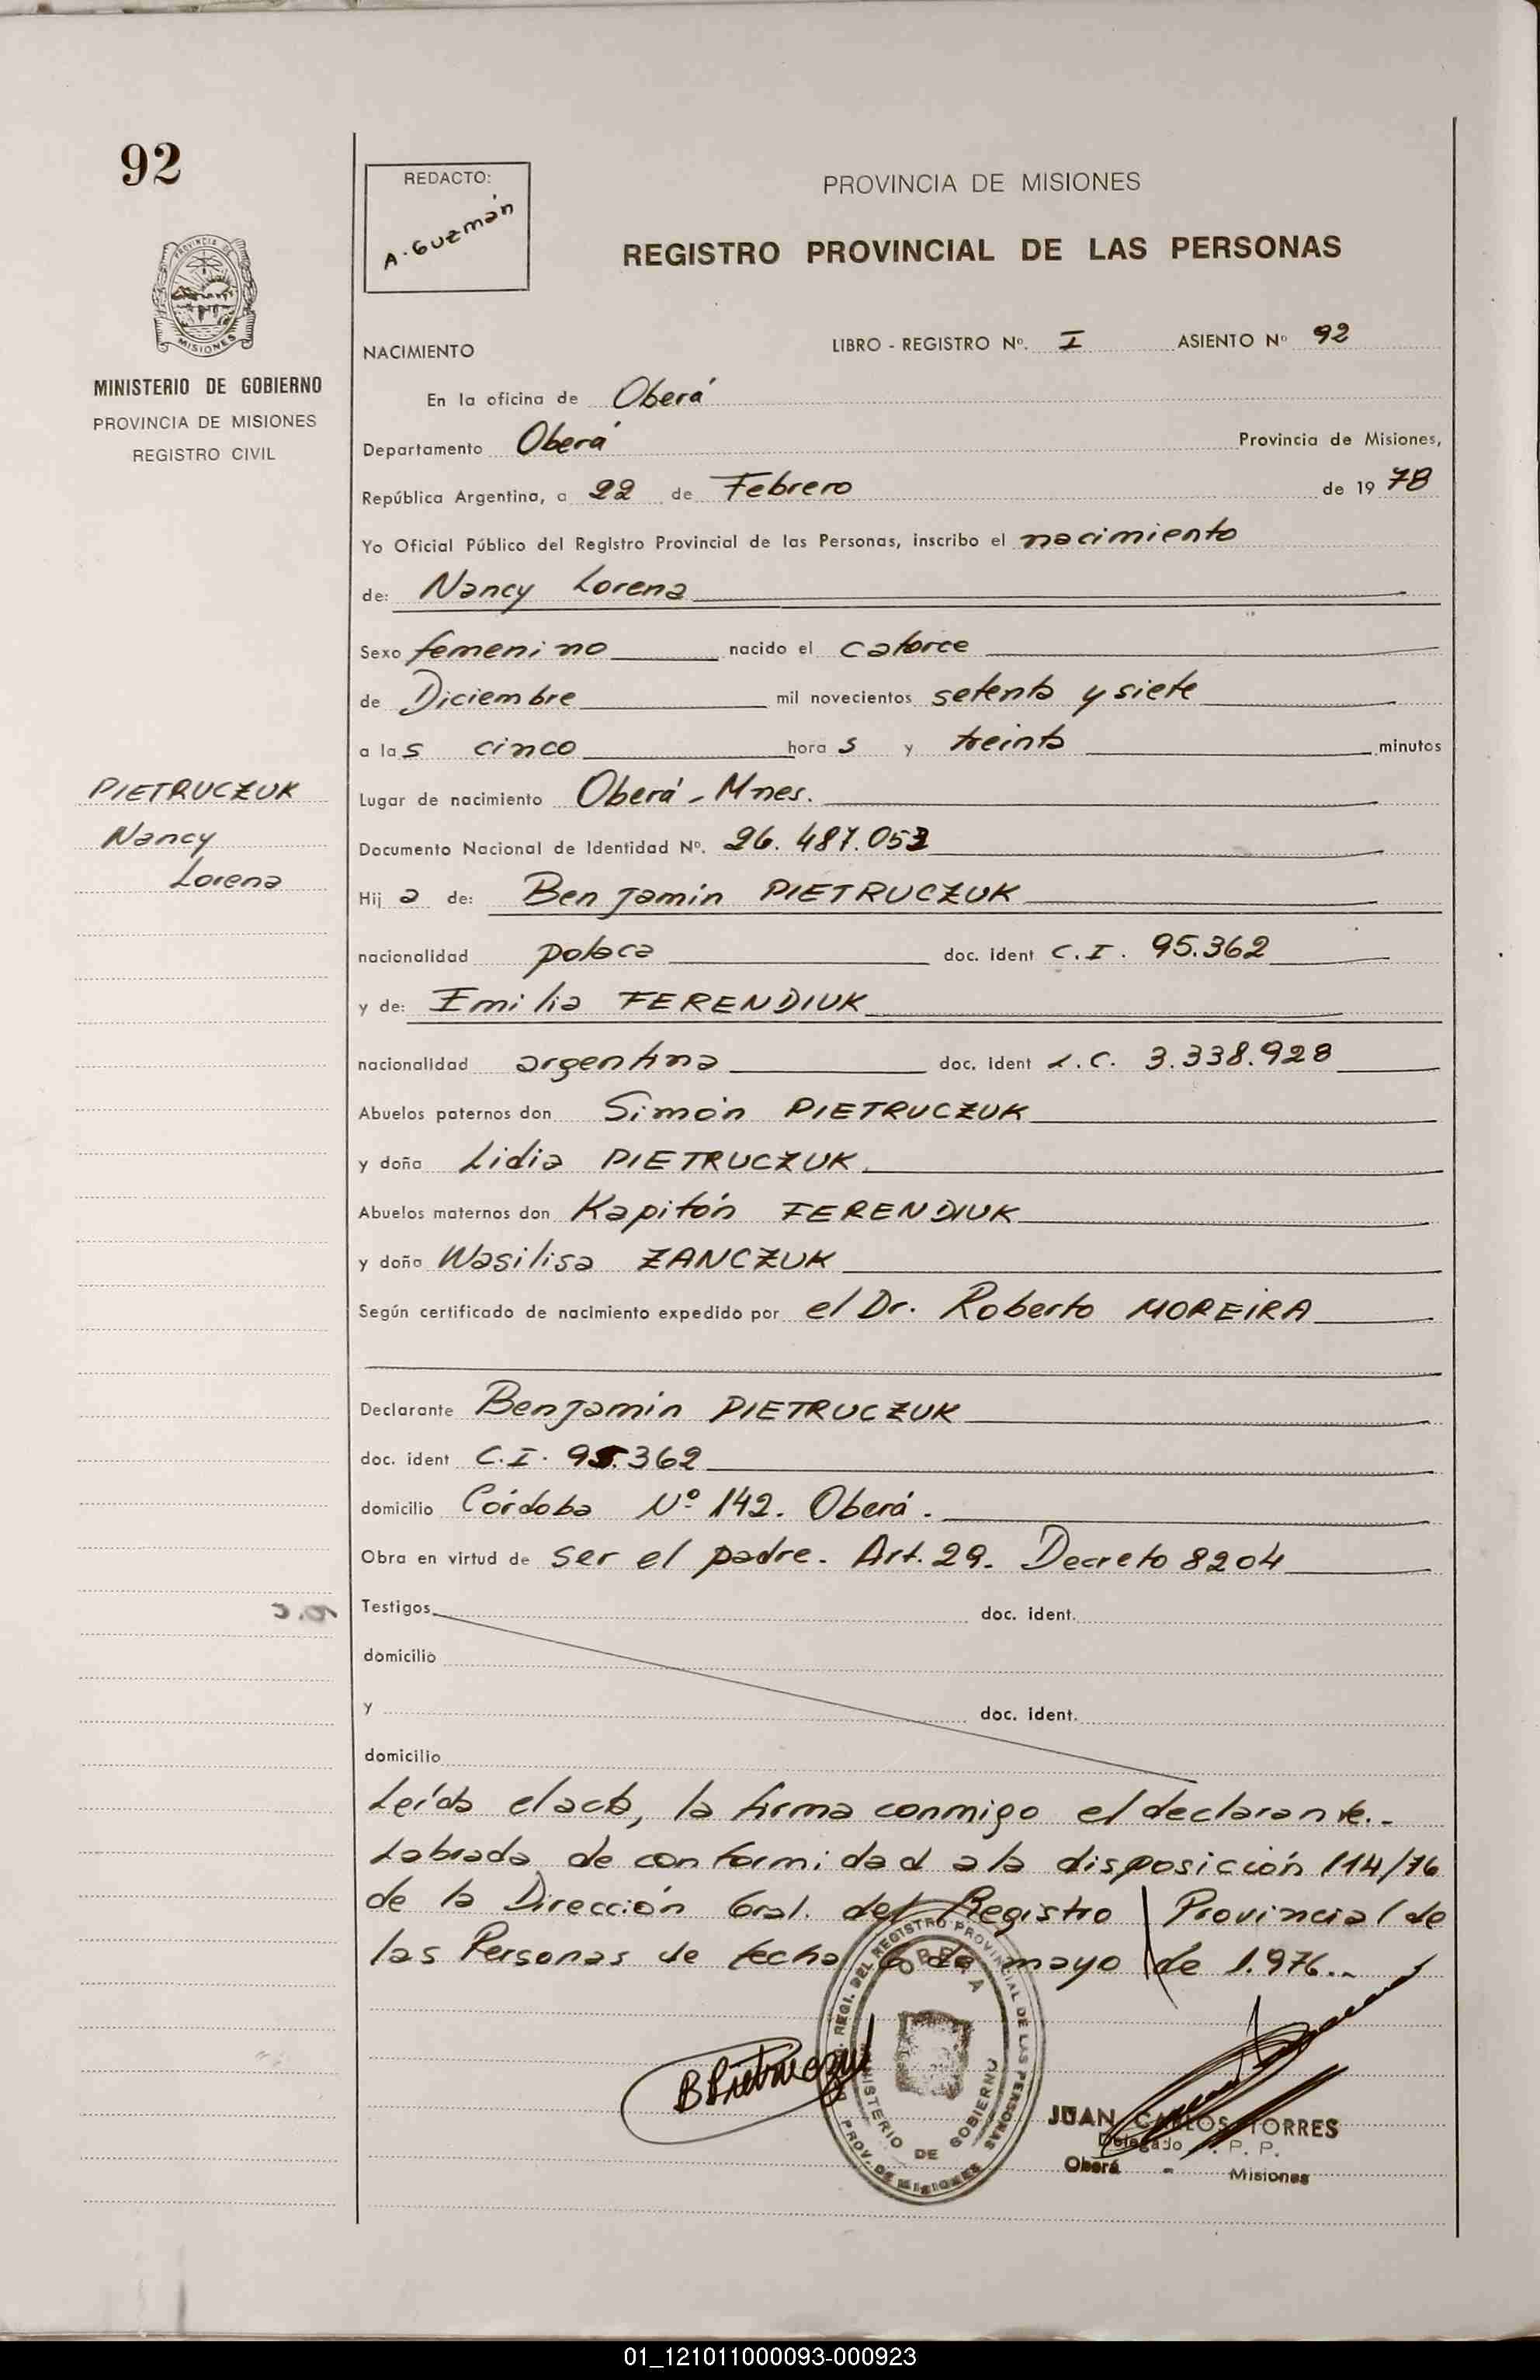 92
REDACTO:
A. Guzmán
PROVINCIA DE MISIONES
REGISTRO PROVINCIAL DE LAS PERSONAS
PROVINCIA DE
MISIONES
MINISTERIO DE GOBIERNO
PROVINCIA DE MISIONES
REGISTRO CIVIL
NACIMIENTO LIBRO - REGISTRO Nº. I ASIENTO Nº 92
En la oficina de Oberá
Departamento Oberá Provincia de Misiones,
República Argentina, a 22 de Febrero de 1978
Yo Oficial Público del Registro Provincial de las Personas, inscribo el nacimiento
de: Nancy Lorena
Sexo femenino nacido el catorce
de Diciembre mil novecientos setenta y siete
a las cinco horas y treinta minutos
PIETRUCZUK
Nancy
Lorena
Lugar de nacimiento Oberá - Mnes.
Documento Nacional de Identidad Nº. 26.487.053
Hija de: Benjamin PIETRUCZUK
nacionalidad polaca doc. ident C.I. 95.362
y de: Emilia FERENDIUK
nacionalidad argentina doc. ident L.C. 3.338.928
Abuelos paternos don Simón PIETRUCZUK
y doña Lidia PIETRUCZUK
Abuelos maternos don Kapitón FERENDIUK
y doña Wasilisa ZANCZUK
Según certificado de nacimiento expedido por el Dr. Roberto MOREIRA
Declarante Benjamin PIETRUCZUK
doc. ident C.I. 95.362
domicilio Córdoba Nº 142. Oberá.
Obra en virtud de ser el padre. Art. 29. Decreto 8204
Testigos doc. ident.
domicilio
y doc. ident.
domicilio
Leída el acta, la firma conmigo el declarante.-
Labrada de conformidad a la disposición 114/76
de la Dirección Gral. del Registro Provincial de
las Personas de fecha 6 de mayo de 1.976.-
REGI. DEL REGISTRO PROVINCIAL DE LAS PERSONAS
OBERA
MINISTERIO DE GOBIERNO
PROV. DE MISIONES
B Pietruczuk
JUAN CARLOS TORRES
Delegado P. P.
Oberá - Misiones
01_121011000093-000923